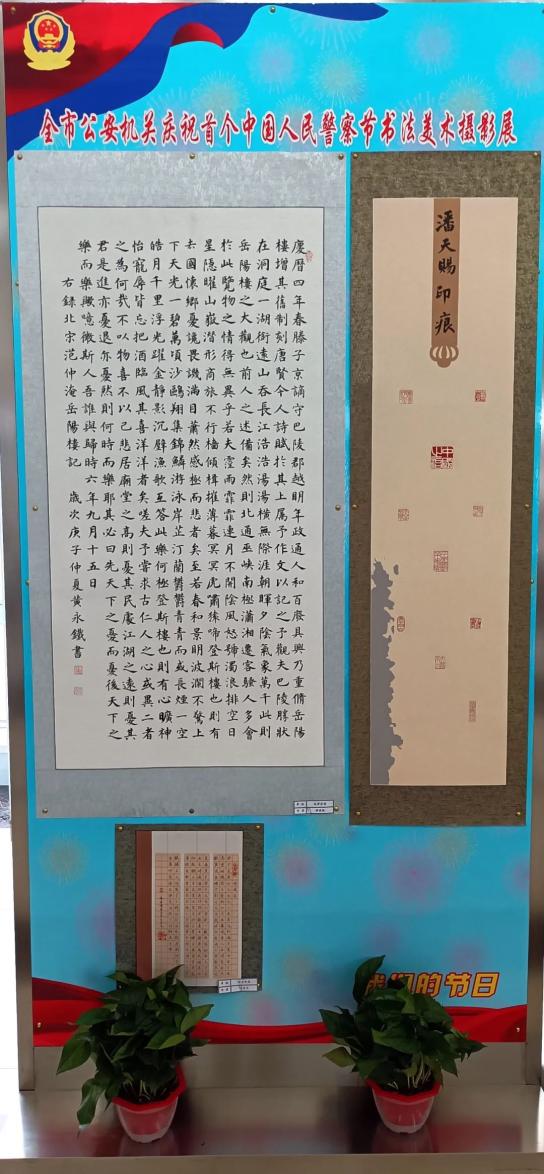 全市公安机关庆祝首个中国人民警察节书法美术摄影展
慶曆四年春滕子京謫守巴陵郡越明年政通人和百廢具興乃重脩岳陽
樓增其舊制刻唐賢今人詩賦於其上属予作文以記之予觀夫巴陵勝狀
在洞庭一湖銜遠山吞長江浩浩湯湯橫無際涯朝暉夕陰氣象萬千此則
岳陽樓之大觀也前人之述備矣然則北通巫峽南極瀟湘遷客騷人多會
於此覽物之情得無異乎若夫霪雨霏霏連月不開陰風怒號濁浪排空日
星隱曜山嶽潛形商旅不行檣傾楫摧薄暮冥冥虎嘯猿啼登斯樓也則有
去國懷鄉憂讒畏譏滿目蕭然感極而悲者矣至若春和景明波瀾不驚上
下天光一碧萬頃沙鷗翔集錦鱗游泳岸芷汀蘭鬱鬱青青而或長煙一空
皓月千里浮光躍金靜影沉璧漁歌互答此樂何極登斯樓也則有心曠神
怡寵辱皆忘把酒臨風其喜洋洋者矣嗟夫予嘗求古仁人之心或異二者
之為何哉不以物喜不以己悲居廟堂之高則憂其民處江湖之遠則憂其
君是進亦憂退亦憂然則何時而樂耶其必曰先天下之憂而憂後天下之
樂而樂歟噫微斯人吾誰與歸時六年九月十五日
右錄北宋范仲淹岳陽樓記 歲次庚子仲夏黃永鐵書
潘天賜印痕
我们的节日